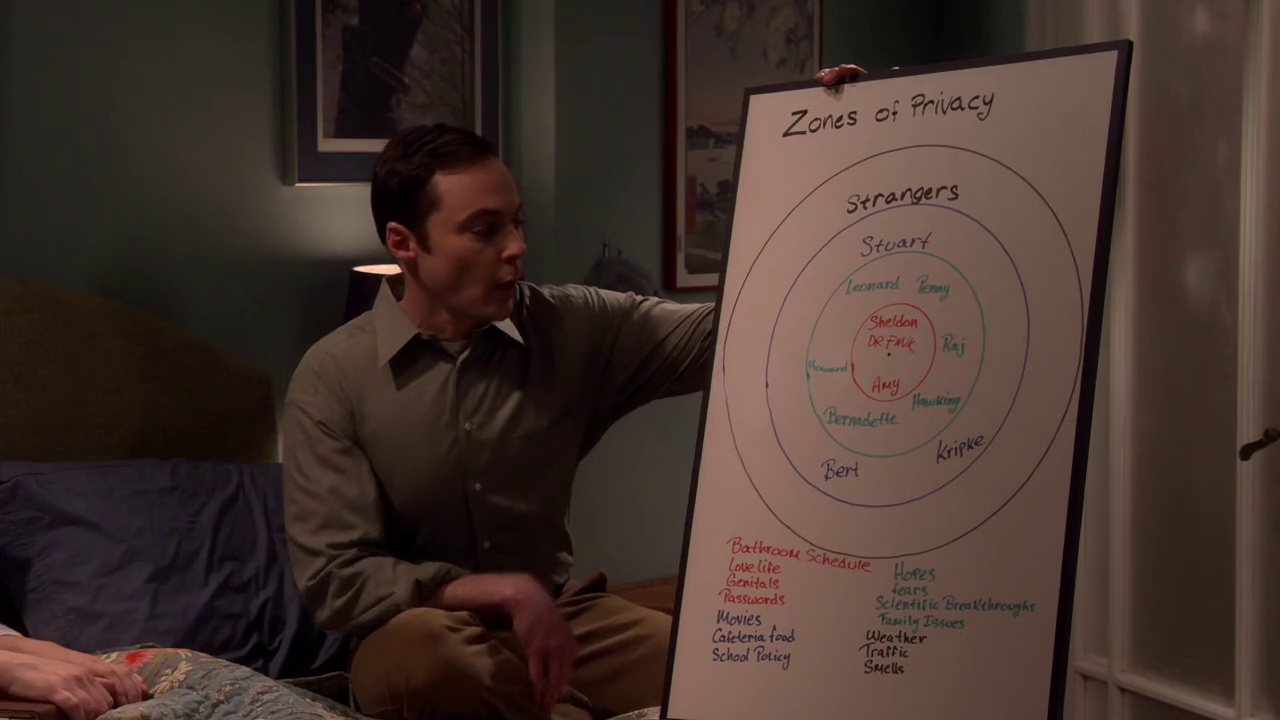 Zones of Privacy
Strangers
Stuart
Leonard Penny
Sheldon
DR Fink
Raj
Howard
Amy
Hawking
Bernadette
Kripke
Bert
Bathroom Schedule
Love life
Genitals
Passwords
Movies
Cafeteria food
School Policy
Hopes
fears
Scientific Breakthroughs
Family Issues
Weather
Traffic
Smells